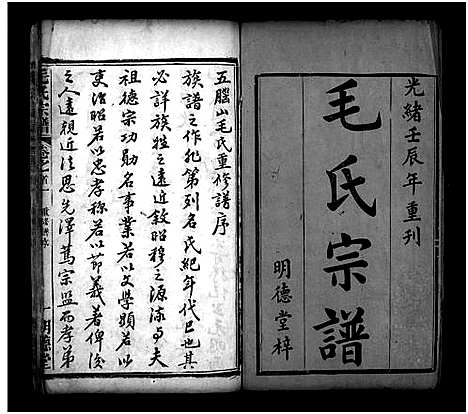 光緒壬辰年重刊
毛氏宗譜
明德堂梓
五臘山毛氏重修譜序
族譜之作孔第列名氏紀年代巳也其
必詳族姓之遠近敘昭穆之源流与夫
祖德宗功勛名事業若何以
吏治昭若以忠孝称若以節義著俾後
之人遠視近法思先澤篤宗盟而孝弟
毛氏宗譜
明德堂